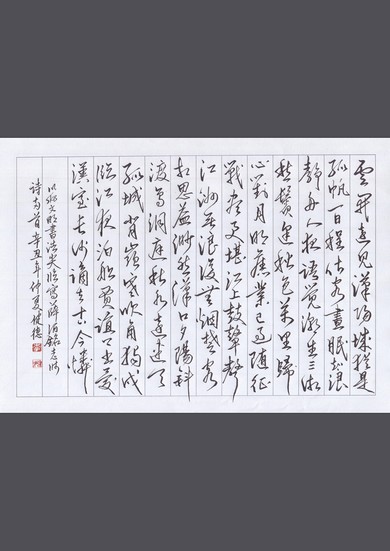 雲開遠見漢陽城猶是
孤帆一日程估客晝眠知浪
靜舟人夜語覺潮生三湘
愁鬢逢秋色萬里歸
心對月明舊業已隨征
戰盡更堪江上鼓鼙聲
汀洲無浪復無烟楚客
相思益渺然漢口夕陽斜
渡鳥洞庭秋水遠連天
孤城背嶺寒吹角獨戍
臨江夜泊船賈誼上書憂
漢室長沙謫去古今憐
詩两首辛丑年仲夏健德